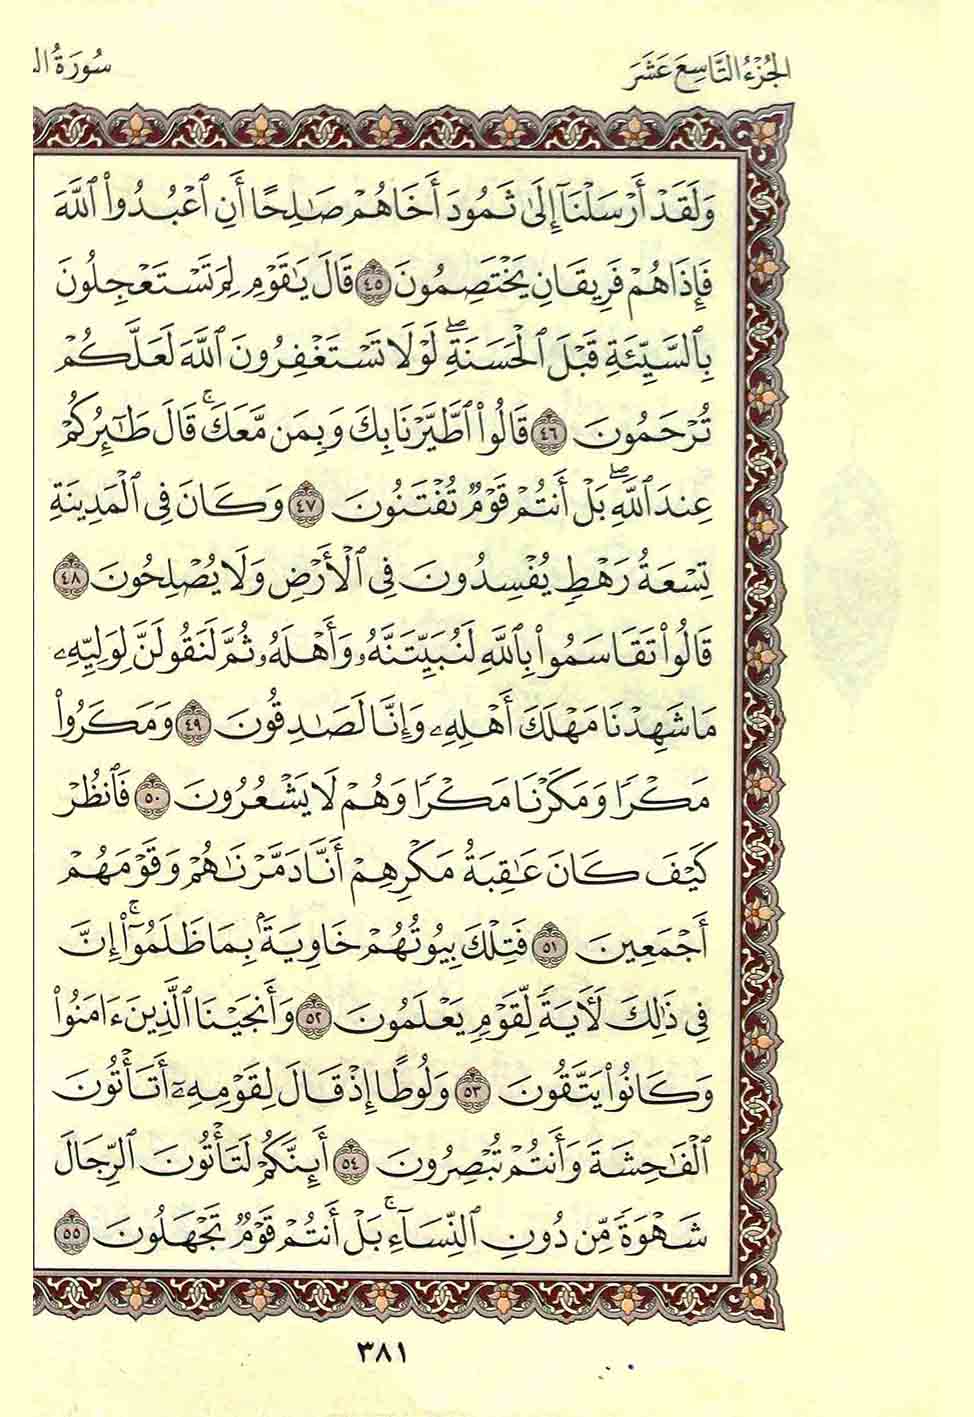 الجُزْءُ التَّاسِعَ عَشَرَ
سُورَةُ
وَلَقَدْ أَرْسَلْنَآ إِلَىٰ ثَمُودَ أَخَاهُمْ صَـٰلِحًا أَنِ ٱعْبُدُوا۟ ٱللَّهَ
فَإِذَا هُمْ فَرِيقَانِ يَخْتَصِمُونَ ٤٥ قَالَ يَـٰقَوْمِ لِمَ تَسْتَعْجِلُونَ
بِٱلسَّيِّئَةِ قَبْلَ ٱلْحَسَنَةِ ۖ لَوْلَا تَسْتَغْفِرُونَ ٱللَّهَ لَعَلَّكُمْ
تُرْحَمُونَ ٤٦ قَالُوا۟ ٱطَّيَّرْنَا بِكَ وَبِمَن مَّعَكَ ۚ قَالَ طَـٰٓئِرُكُمْ
عِندَ ٱللَّهِ ۖ بَلْ أَنتُمْ قَوْمٌ تُفْتَنُونَ ٤٧ وَكَانَ فِى ٱلْمَدِينَةِ
تِسْعَةُ رَهْطٍ يُفْسِدُونَ فِى ٱلْأَرْضِ وَلَا يُصْلِحُونَ ٤٨
قَالُوا۟ تَقَاسَمُوا۟ بِٱللَّهِ لَنُبَيِّتَنَّهُۥ وَأَهْلَهُۥ ثُمَّ لَنَقُولَنَّ لِوَلِيِّهِۦ
مَا شَهِدْنَا مَهْلِكَ أَهْلِهِۦ وَإِنَّا لَصَـٰدِقُونَ ٤٩ وَمَكَرُوا۟
مَكْرًا وَمَكَرْنَا مَكْرًا وَهُمْ لَا يَشْعُرُونَ ٥٠ فَٱنظُرْ
كَيْفَ كَانَ عَـٰقِبَةُ مَكْرِهِمْ أَنَّا دَمَّرْنَـٰهُمْ وَقَوْمَهُمْ
أَجْمَعِينَ ٥١ فَتِلْكَ بُيُوتُهُمْ خَاوِيَةًۢ بِمَا ظَلَمُوٓا۟ ۗ إِنَّ
فِى ذَٰلِكَ لَـَٔايَةً لِّقَوْمٍ يَعْلَمُونَ ٥٢ وَأَنجَيْنَا ٱلَّذِينَ ءَامَنُوا۟
وَكَانُوا۟ يَتَّقُونَ ٥٣ وَلُوطًا إِذْ قَالَ لِقَوْمِهِۦٓ أَتَأْتُونَ
ٱلْفَـٰحِشَةَ وَأَنتُمْ تُبْصِرُونَ ٥٤ أَئِنَّكُمْ لَتَأْتُونَ ٱلرِّجَالَ
شَهْوَةً مِّن دُونِ ٱلنِّسَآءِ ۚ بَلْ أَنتُمْ قَوْمٌ تَجْهَلُونَ ٥٥
٣٨١